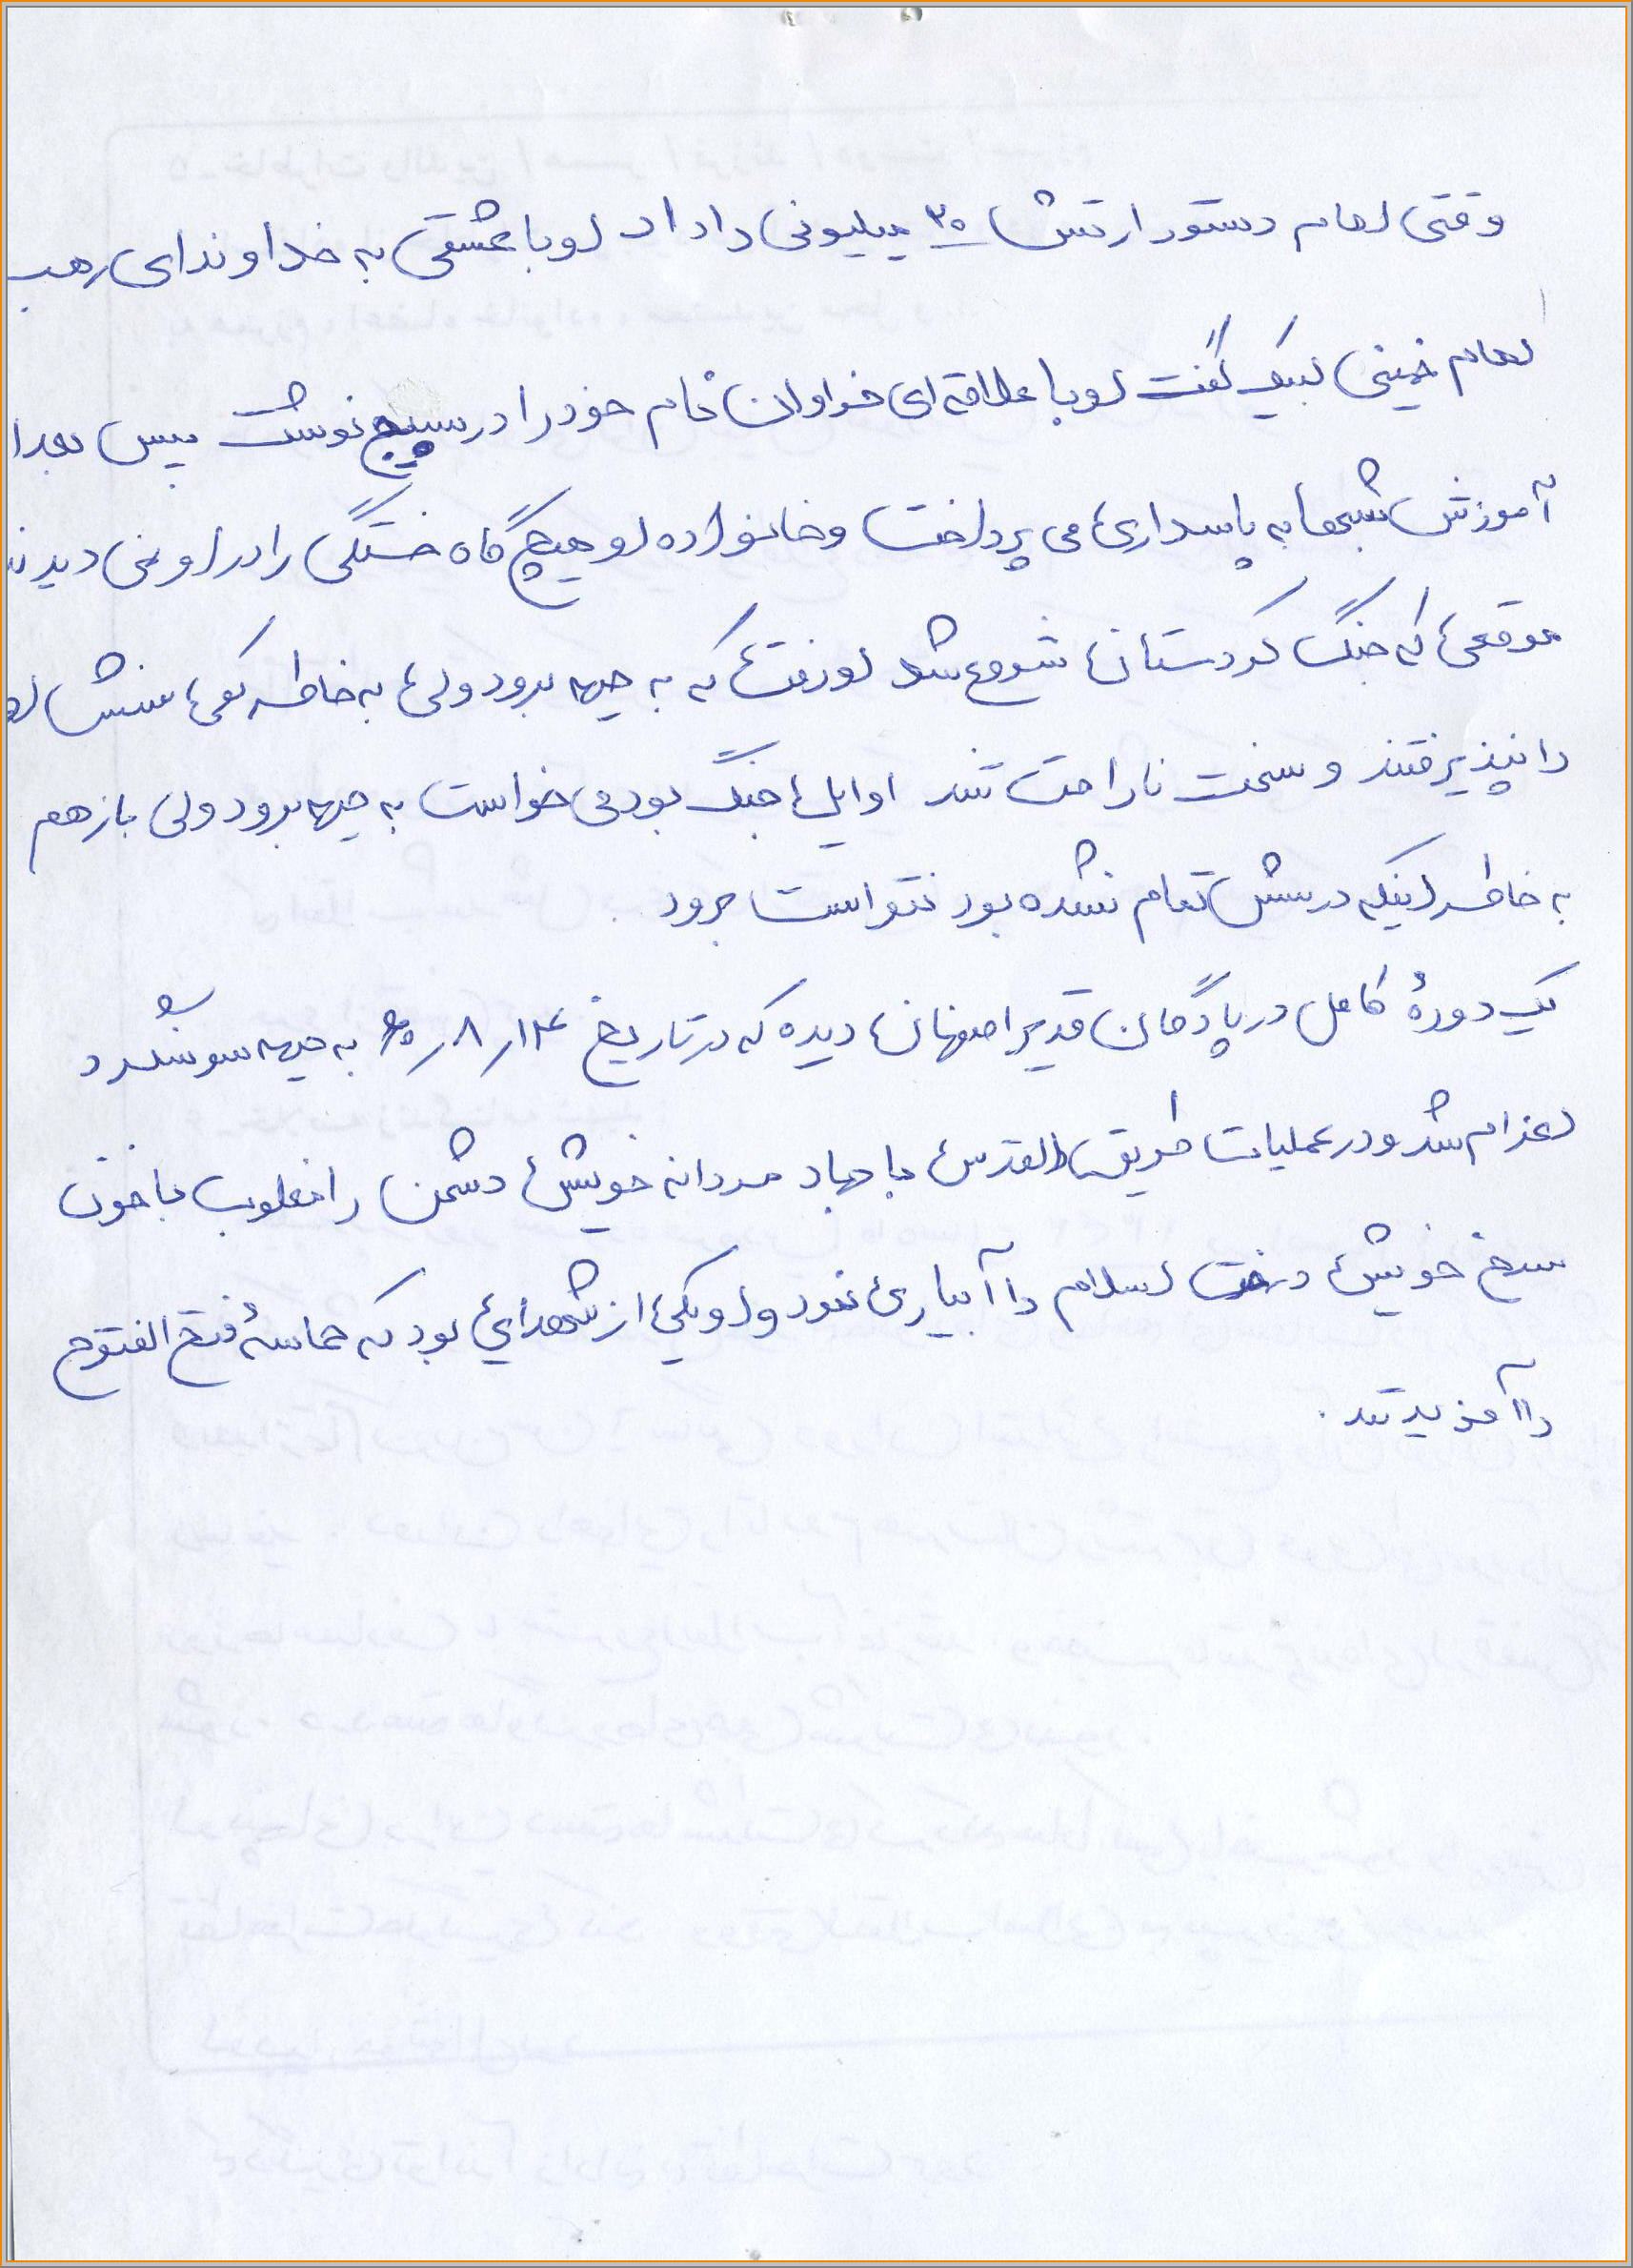 وقتی امام دستور ارتش ۲۰ میلیونی را داد او با عشقی به خدا و ندای رهب
امام خمینی لبیک گفت او با علاقه ای فراوان نام خود را در بسیج نوشت پس بعد ا
آموزش شبها به پاسداری می پرداخت و خانواده او هیچ گاه خستگی را در او نمی دیدند
موقعی که جنگ کردستان شروع شد او رفت که به جبهه برود ولی به خاطر کمی سنش او
را نپذیرفتند و سخت ناراحت شد اوایل جنگ بود می خواست به جبهه برود ولی باز هم
به خاطر اینکه درسش تمام نشده بود نتواست برود
یک دورهٔ کامل در پادگان غدیر اصفهان دیده که در تاریخ ۱۴/۸/۶۰ به جبهه سوسنگرد
اعزام شد و در عملیات طریق القدس با جهاد مردانه خویش دشمن را مغلوب با خون
سرخ خویش درخت اسلام را آبیاری نمود و او یکی از شهدای بود که حماسهٔ فتح الفتوح
را آفریدند.